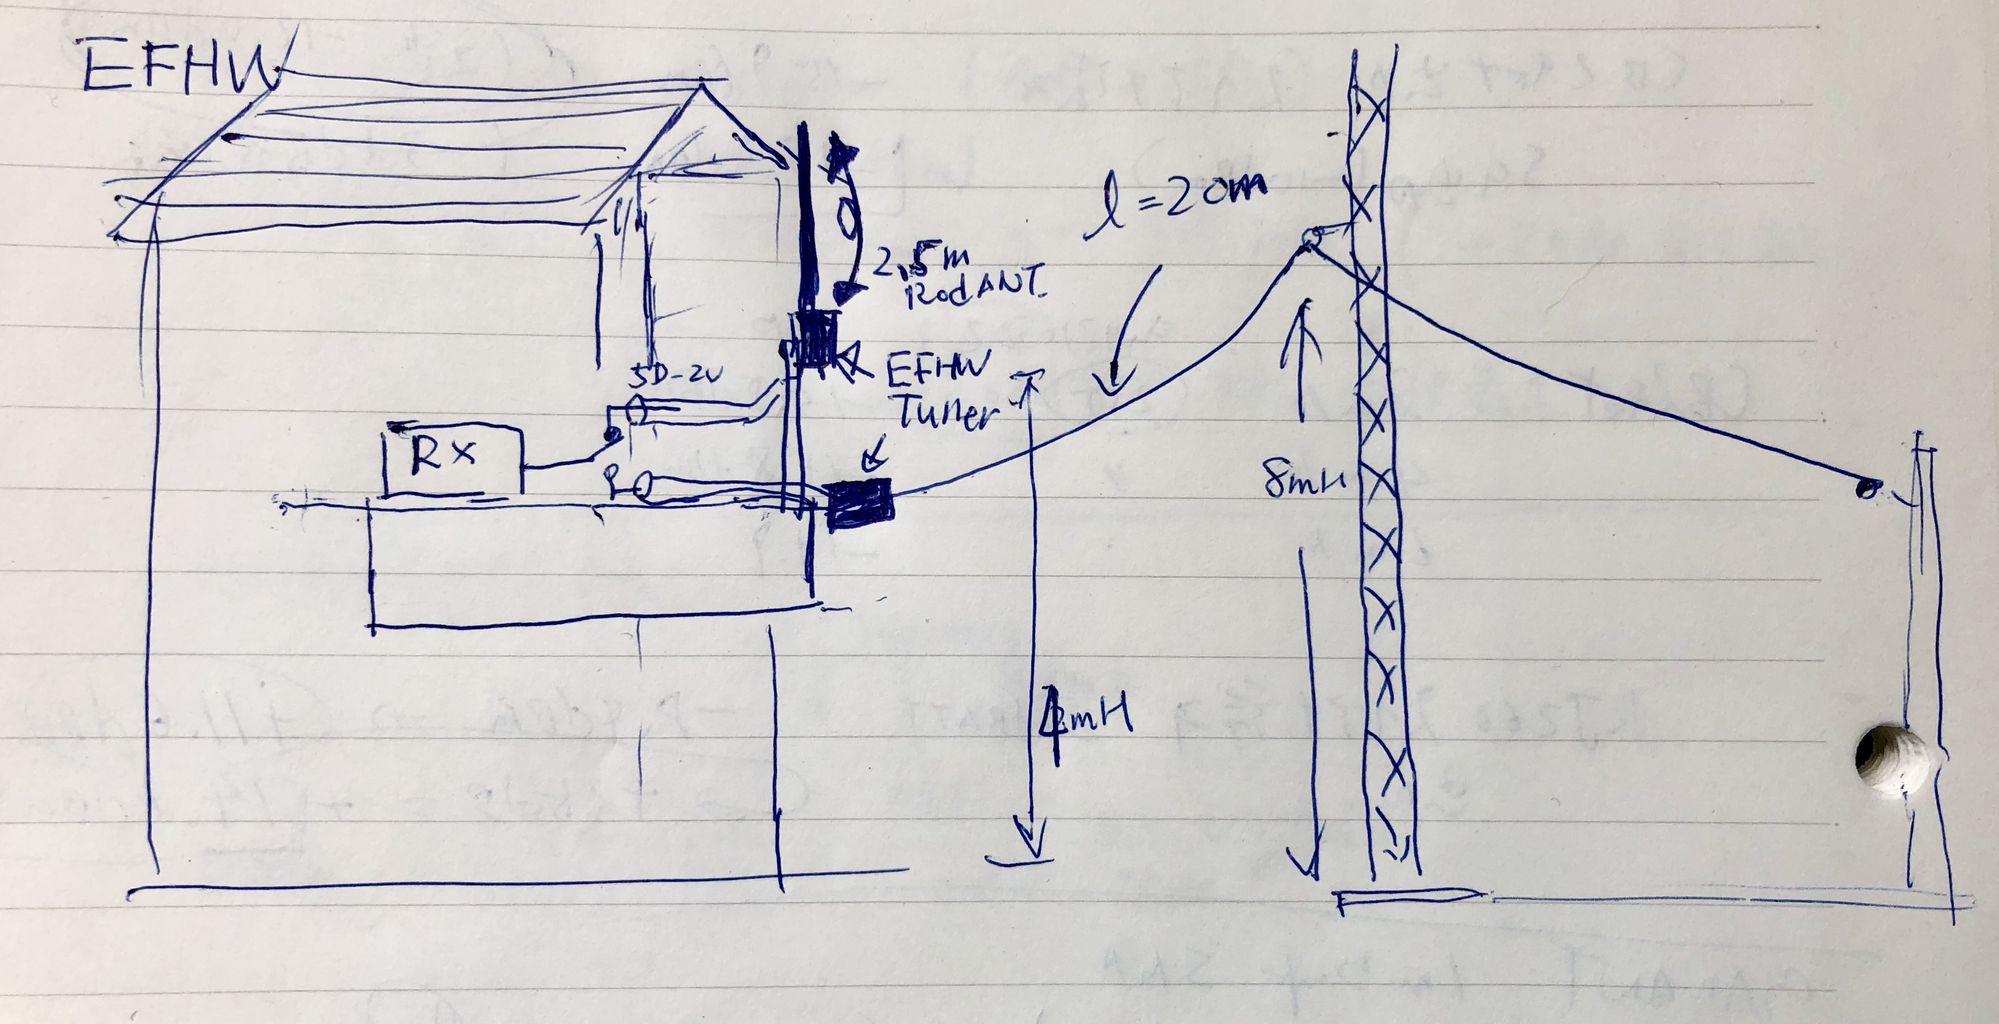 EFHW
l=20m
2.5m
Rod ANT.
5D-2V
EFHW
Tuner
RX
8mH
4mH